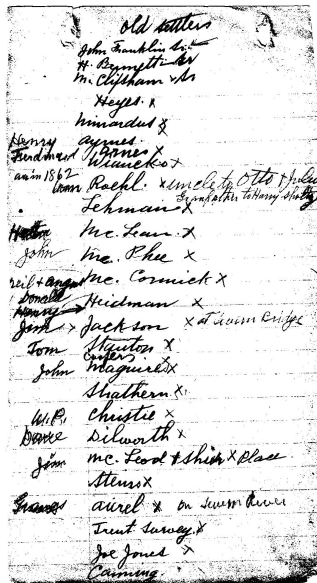 old settlers
John Franklin Sr
H. Bennett Sr
M. Clipsham Sr
Heyes. x
Minardus x
Henry Ayrnes
Ferdinand Warnes x
am in 1862 Wauck x
Roehl. x uncle to Otto + Julius
Granfather to Harry
Lehman x
Mc. Lean. x
John Mc. Phee x
Neil + Angus Mc. Cormick x
Donald
Heidman x
Jim Jackson x at Severn Bridge
Tom Stanton x
Coopers x
John Maguire x
Shathern x
W.P. Christie x
Dave Dilworth x
Jim Mc. Leod + Shier x Place
Stens x
Graves Aurel x on Severn River
Trent Survey x
Joe Jones x
Canning